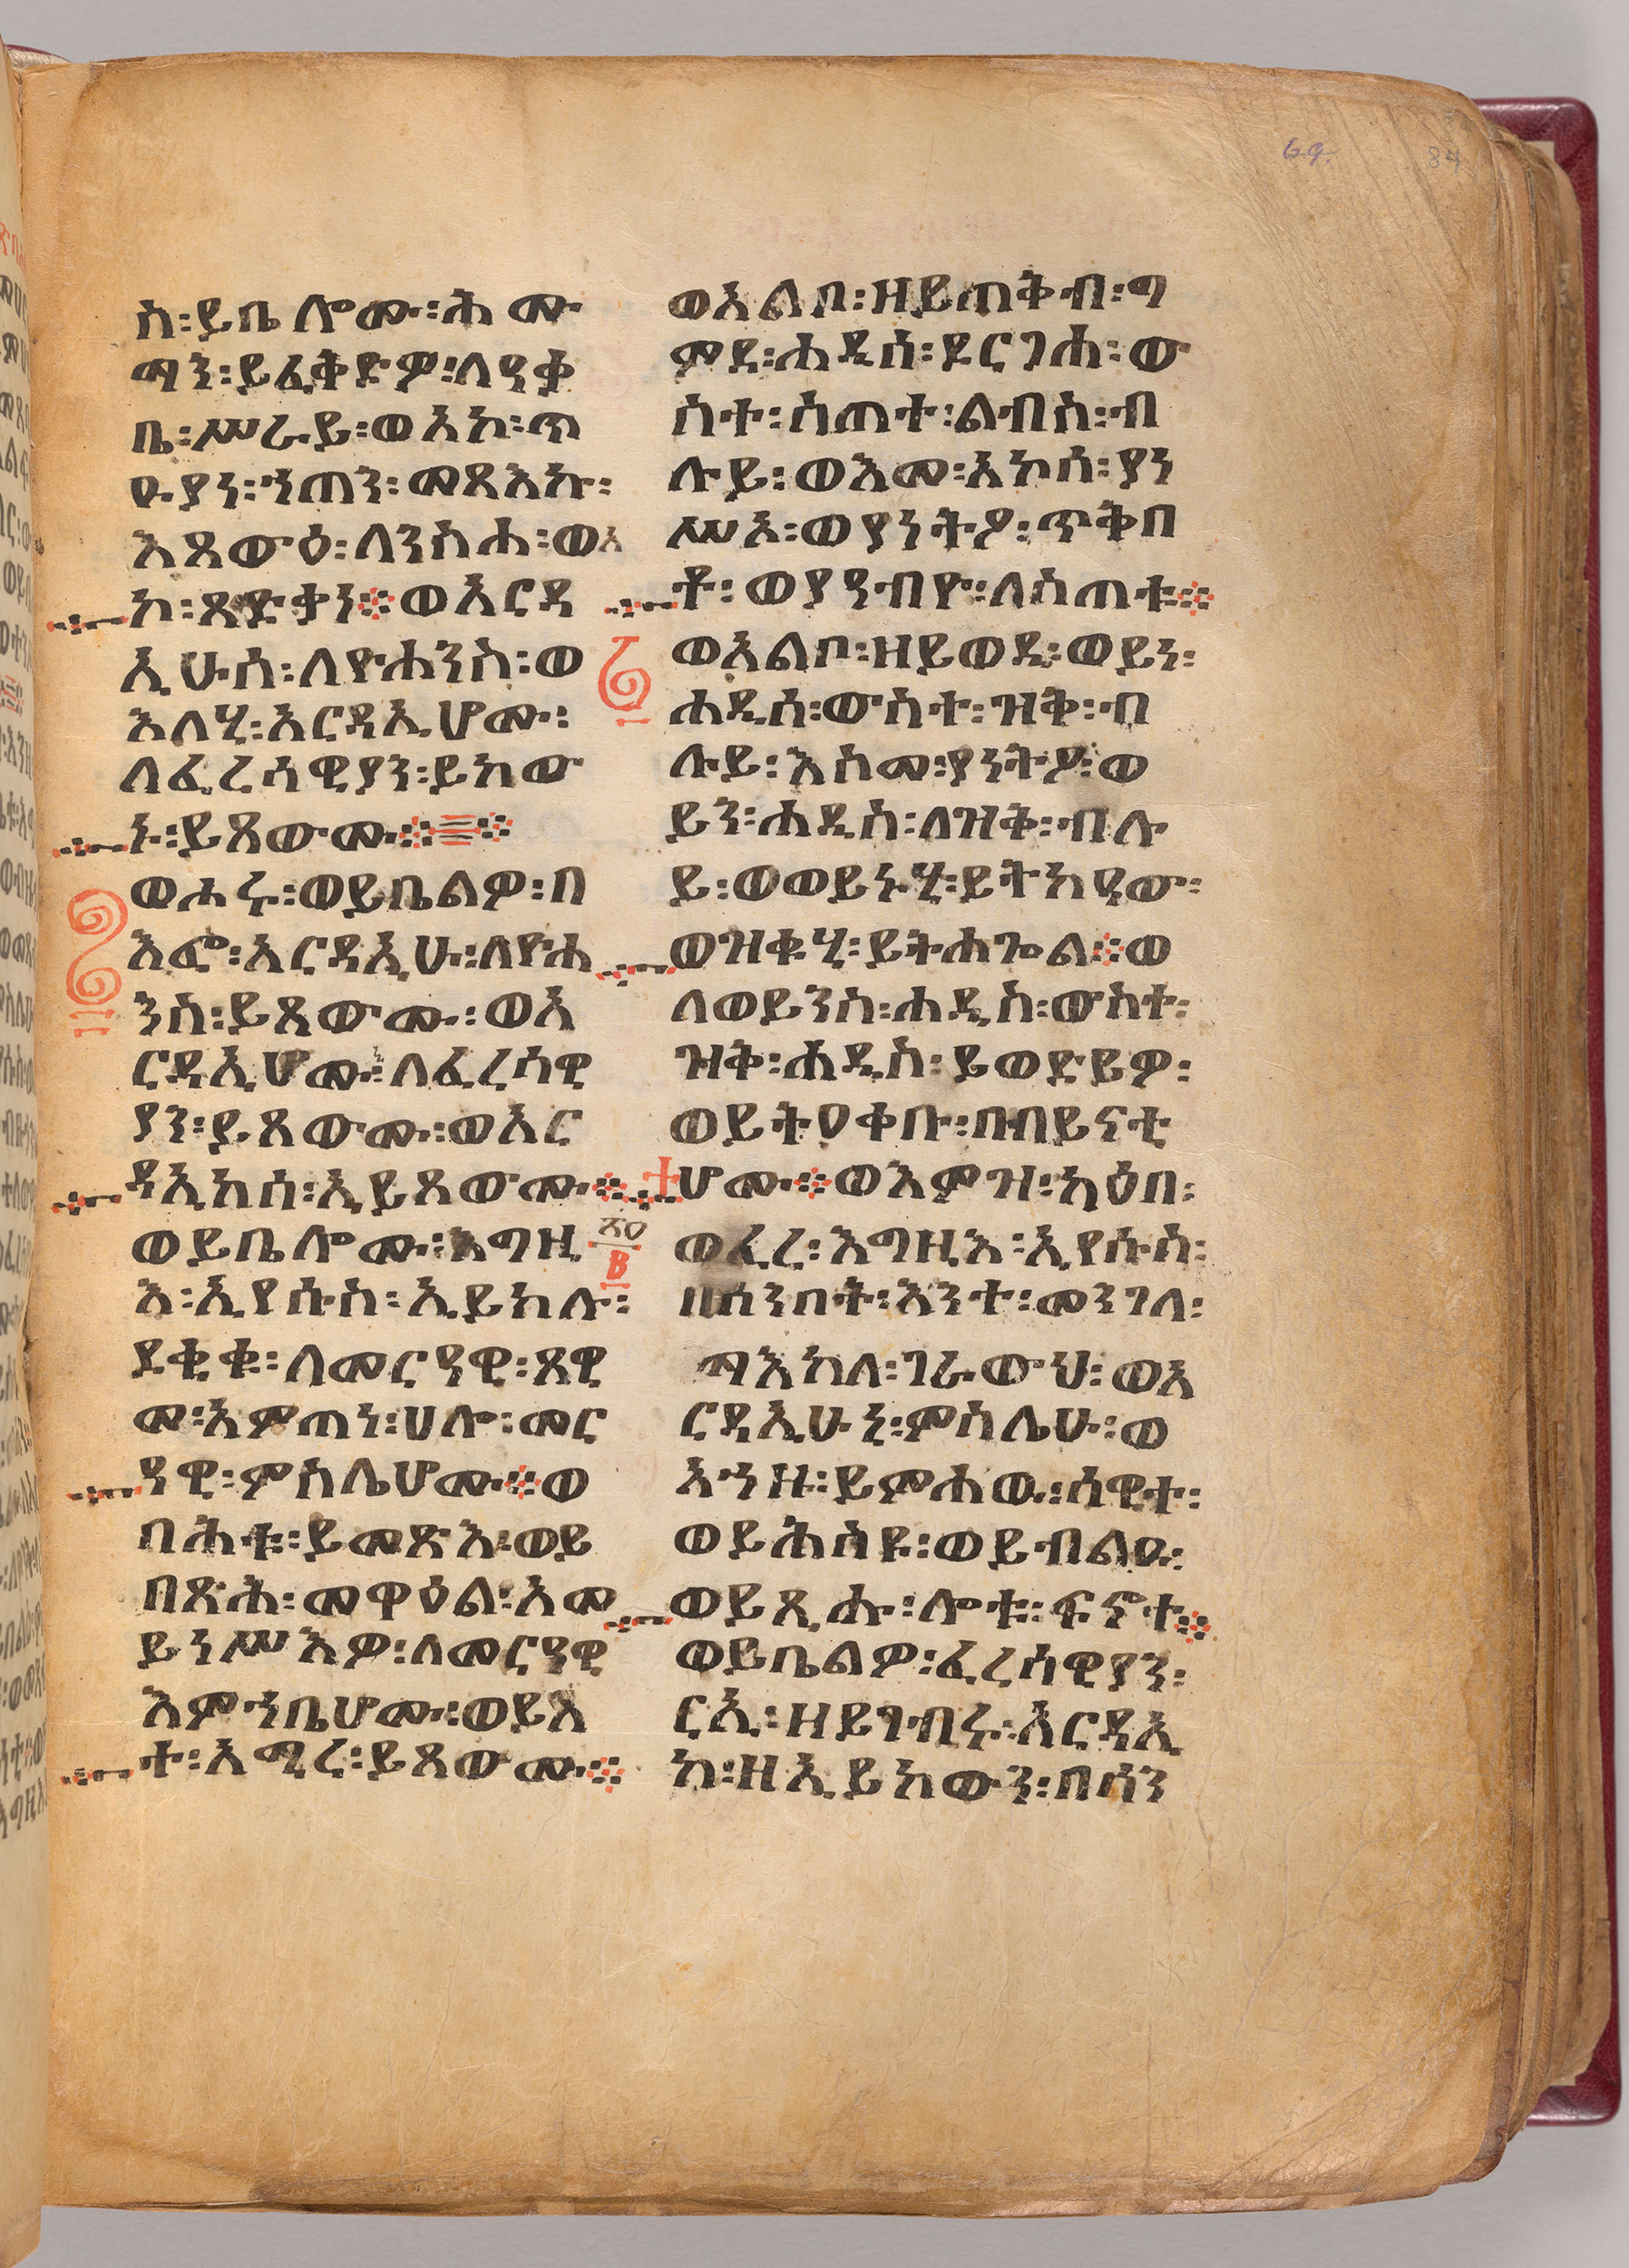 69.
84
ስ፡ይቤሎሙ፡ሕሙ
ማን፡ይፈቅድዎ፡ለዓቃ
ቤ፡ሥራይ፡ወአኮ፡ጥ
ዑያን፡ኀጠን፡መጻእኩ፡
እጸውዕ፡ለንስሐ፡ወአ
ኮ፡ጻድቃን፨ወአርዳ
ኢሁሰ፡ለዮሐንስ፡ወ
እለሂ፡አርዳኢሆሙ፡
ለፈሪሳዊያን፡ይከው
ኑ፡ይጸውሙ፨፨
ወሖሩ፡ወይቤልዎ፡በ
እፎ፡አርዳኢሁ፡ለዮሐ
ንስ፡ይጸውሙ፡ወአ
ርዳኢሆሙ፡ለፈሪሳዊ
ያን፡ይጸውሙ፡ወአር
ዳኢከሰ፡ኢይጸውሙ፨
ወይቤሎሙ፡እግዚ
እ፡ኢየሱስ፡ኢይክሉ፡
ደቂቁ፡ለመርዓዊ፡ጸዊ
መ፡አምጠነ፡ሀሎ፡መር
ዓዊ፡ምስሌሆሙ፨ወ
በሕቱ፡ይመጽእ፡ወይ
በጽሕ፡መዋዕል፡አመ
ይነሥእዎ፡ለመርዓዊ
እምኀቤሆሙ፡ወይእ
ተ፡አሚረ፡ይጸውሙ፨
ወአልቦ፡ዘይጠቅብ፡ግ
ምደ፡ሐዲሰ፡ደርገሐ፡ው
ስተ፡ስጠተ፡ልብስ፡ብ
ሉይ፡ወእመ፡አኮሰ፡ያነ
ሥኦ፡ወያነትዖ፡ጥቅበ
ቶ፡ወያዓብዮ፡ለስጠቱ፨
ወአልቦ፡ዘይወዲ፡ወይነ፡
ሐዲሰ፡ውስተ፡ዝቅ፡ብ
ሉይ፡እስመ፡ያነትዖ፡ወ
ይን፡ሐዲስ፡ለዝቅ፡ብሉ
ይ፡ወወይኑሂ፡ይትከዓው፡
ወዝቁሂ፡ይትሐጐል፨ወ
ለወይንስ፡ሐዲስ፡ውስተ፡
ዝቅ፡ሐዲስ፡ይወድይዎ፡
ወይትዐቀቡ፡በበይናቲ
ሆሙ፨ወእምዝ፡ካዕበ፡
ወፈረ፡እግዚእ፡ኢየሱስ፡
በሰንበት፡እንተ፡መንገለ፡
ማእከለ፡ገራውህ፡ወአ
ርዳኢሁኒ፡ምስሌሁ፡ወ
አኀዙ፡ይምሐዉ፡ሰዊተ፡
ወይሕስዩ፡ወይብልዑ፡
ወይጺሑ፡ሎቱ፡ፍኖተ፨
ወይቤልዎ፡ፈሪሳዊያን፡
ርኢ፡ዘይገብሩ፡አርዳኢ
ከ፡ዘኢይከውን፡በሰን